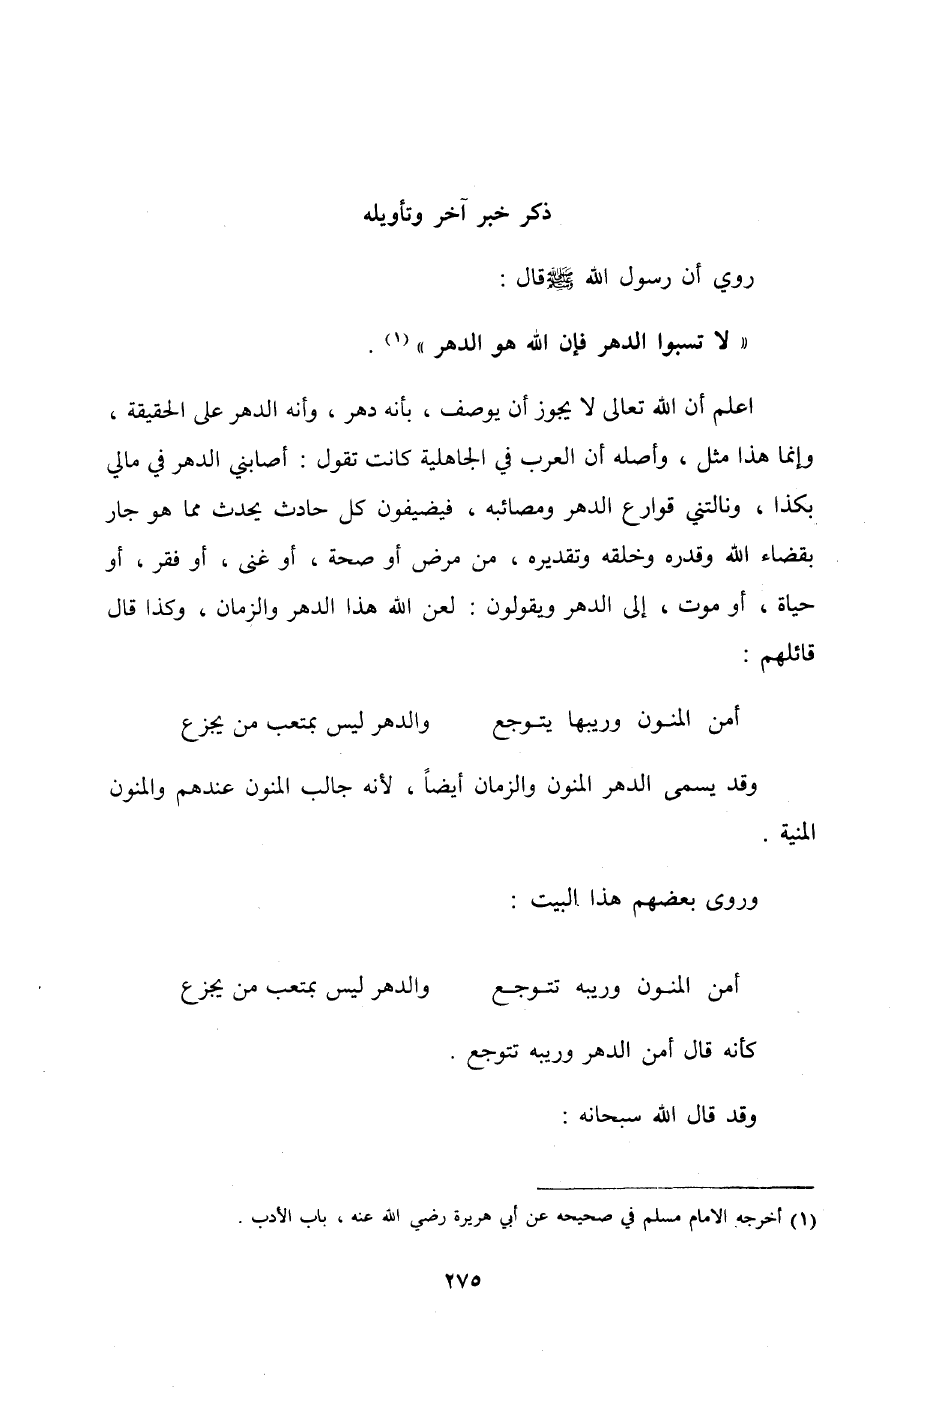 ذكر خبر آخر وتأويله
روي أن رسول الله ﷺ قال :
« لا تسبوا الدهر فإن الله هو الدهر » (١) .
اعلم أن الله تعالى لا يجوز أن يوصف ، بأنه دهر ، وأنه الدهر على الحقيقة ،
وإنما هذا مثل ، وأصله أن العرب في الجاهلية كانت تقول : أصابني الدهر في مالي
بكذا ، ونالتني قوارع الدهر ومصائبه ، فيضيفون كل حادث يحدث مما هو جار
بقضاء الله وقدره وخلقه وتقديره ، من مرض أو صحة ، أو غنى ، أو فقر ، أو
حياة ، أو موت ، إلى الدهر ويقولون : لعن الله هذا الدهر والزمان ، وكذا قال
قائلهم :
أمن المنـون وريبها يتـوجع والدهر ليس بمتعب من يجزع
وقد يسمى الدهر المنون والزمان أيضاً ، لأنه جالب المنون عندهم والمنون
المنية .
وروى بعضهم هذا البيت :
أمن المنـون وريبه تتـوجـع والدهر ليس بمتعب من يجزع
كأنه قال أمن الدهر وريبه تتوجع .
وقد قال الله سبحانه :
(١) أخرجه الامام مسلم في صحيحه عن أبي هريرة رضي الله عنه ، باب الأدب .
٢٧٥